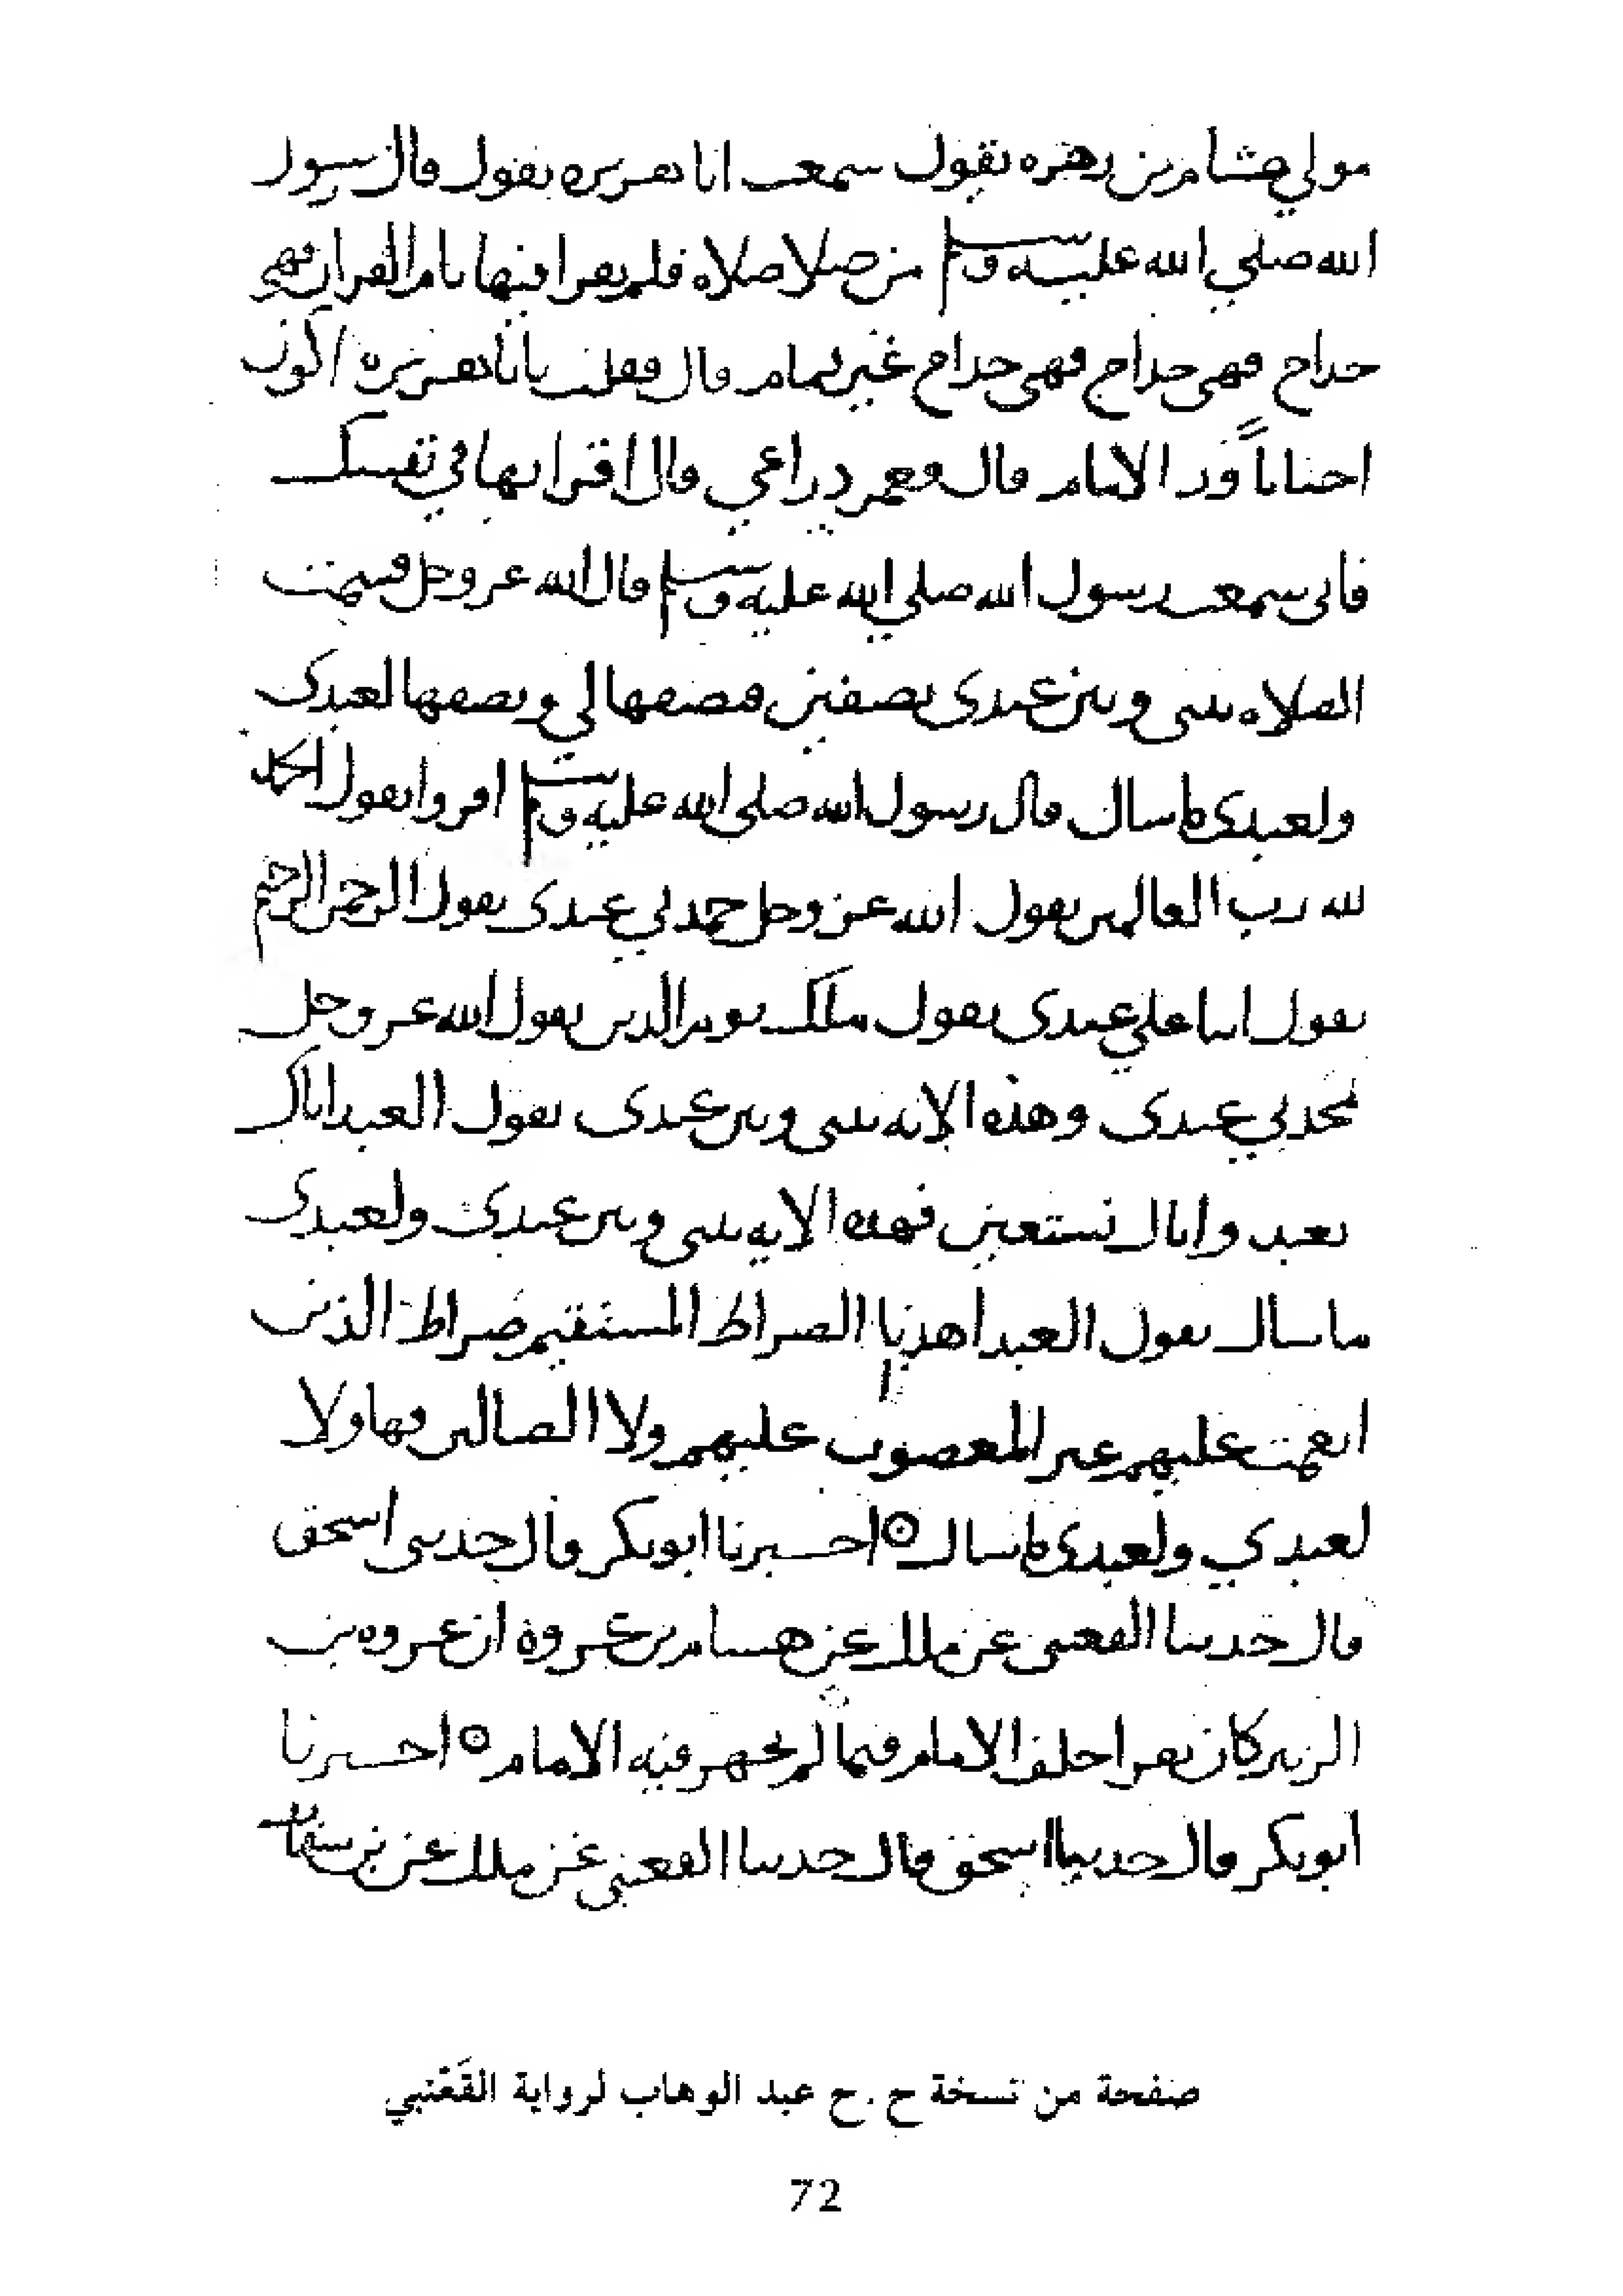 مولي هشام بن زهره يقول سمعت ابا هريره يقول قال رسول
الله صلي الله عليه وسلم من صلا صلاه فلم يقرا فيها بام القران فهي
خداج فهي خداج فهي خداج غير تمام قال فقلت يا با هريره اكون
احيانا ورا الامام قال فغمز ذراعي قال اقرا بها في نفسك
فاني سمعت رسول الله صلي الله عليه وسلم قال الله عز وجل قسمت
الصلاه بيني وبين عبدي نصفين فنصفها لي ونصفها لعبدي
ولعبدي ما سال قال رسول الله صلي الله عليه وسلم اقروا يقول الحمد
لله رب العالمين يقول الله عز وجل حمدني عبدي يقول الرحمن الرحيم
يقول اثنا علي عبدي يقول ملك يوم الدين يقول الله عز وجل
مجدني عبدي وهذه الايه بيني وبين عبدي يقول العبد اياك
نعبد واياك نستعين فهذه الايه بيني وبين عبدي ولعبدي
ما سال يقول العبد اهدنا الصراط المستقيم صراط الذين
انعمت عليهم غير المغضوب عليهم ولا الضالين فهاولا
لعبدي ولعبدي ما سال ⊙ اخبرنا ابو بكر قال حدثني اسحق
قال حدثنا القعنبي عن ملك عن هشام بن عروة ان عروه بن
الزبير كان يقرا خلف الامام فيما لم يجهر فيه الامام ⊙ اخبرنا
ابو بكر قال حدثنا اسحق قال حدثنا القعنبي عن ملك عن بن شهاب
صفحة من نسخة ح.ح عبد الوهاب لرواية القَعْنبي
72